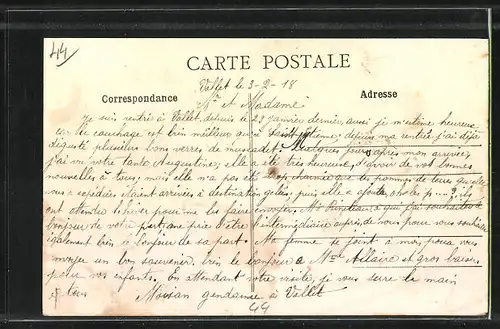 44
CARTE POSTALE
Vallet le 3-2-18
Correspondance
Adresse
Mr et Madame
Je suis rentré à Vallet depuis le 28 janvier dernier, aussi je m'estime heureux
car le couchage est bien meilleur qu'à Saint Etienne; depuis ma rentrée j'ai déjà
dégusté plusieurs bons verres de muscadet. Quelques jours après mon arrivée,
j'ai vu votre tante Augustine; elle a été très heureuse d'avoir de vos bonnes
nouvelles à tous; mais elle n'a pas été trop charmée que les pommes de terre qu'elle
vous a expédiées étaient arrivées à destination gelées puis elle a ajouté
attendre l'hiver pour me les faire envoyer. Mr à qui j'ai souhaité le
bonjour de votre part me prie d'être l'intermédiaire auprès de vous pour vous souhaiter
également bien le bonjour de sa part. Ma femme se joint à moi pour vous
envoyer un bon souvenir. bien le bonjour à Mme Allaire et gros baisers
pour vos enfants. En attendant votre visite, je vous serre la main
à tous Moisan gendarme à Vallet
44